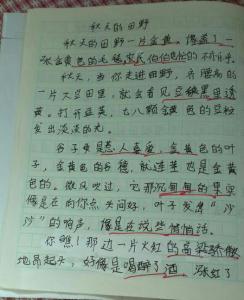 秋天的田野
秋天的田野一片金黄。像盖了一
张金黄色的毛毯农民伯伯忙的不亦乐乎。
秋天，当你走进田野，齐腰高的
一片大豆田里，就会看见豆穗黑里透
黄。打开豆荚，七八颗金黄色的豆粒
发出淡淡的光。
谷子更是惹人喜爱，金黄色的叶
子，金黄色的谷穗，就连茎也是金黄
色的。微风吹过，它那沉甸甸的果实
像是在向你点头问好，叶子发出“沙
沙”的响声，像是在说些悄悄话。
你瞧！那边一片火红的高粱骄傲
地昂起头，好像是喝醉了酒，涨红了